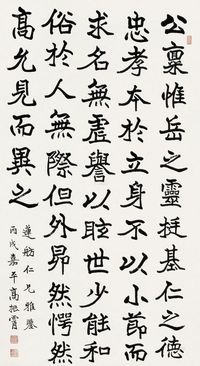 公稟惟岳之靈挺基仁之德
忠孝夲於立身不以小節而
求名無虛譽以眩世少能和
俗於人無際但外昻然愕然
高允見而異之
蓮舫仁兄雅鑒
丙戌嘉平高振霄